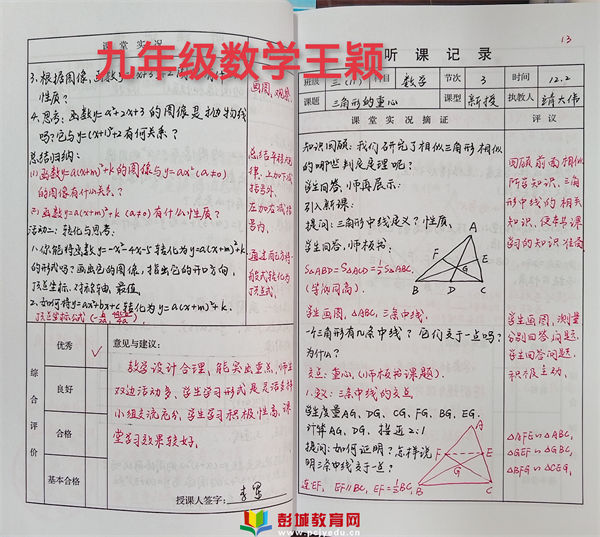 九年级数学王颖
课 堂 实 况
3.根据图像,函数
性质?
画图,观察
4.思考:函数y=x²+2x+3的图像是抛物线
吗?它与y=(x+1)²+2有何关系?
总结归纳:
(1)函数y=a(x+m)²+k的图像与y=ax²(a≠0)
的图像有什么关系?
(2)函数y=a(x+m)²+k (a≠0)有什么性质?
总结平移规
律,上加下减
括号外,
左加右减括
号内,
活动二:转化与思考:
1.你能将函数y=-x²-4x-5转化为y=a(x+m)²+k
的形式吗?画出它的图像,指出它的开口方向,
顶点坐标、对称轴、最值
2.如何将y=ax²+bx+c转化为y=a(x+m)²+k.
通过配方将
一般式转化为
顶点式.
综合评价
优秀
✓
良好
合格
基本合格
意见与建议:
教学设计合理,能突出重点,师生
双边活动多、学生学习形式灵活多样
小组交流充分,学生学习积极性高,课
堂学习效果较好.
授课人签字:
13
听 课 记 录
班级
三(11)
科目
数学
节次
3
时间
12.2
课题
三角形的重心
课型
新授
执教人
靖大伟
课 堂 实 况 摘 证
评 议
知识回顾:我们研究了相似三角形相似
的哪些判定定理呢?
学生回答,师再展示:
引入新课:
提问:三角形中线定义?性质,
学生回答,师板书:
S△ABD=S△ACD=½S△ABC.
(等底同高)
A
F
E
G
B
D
C
回顾前面相似
所学知识,三角
形中线的相关
知识,便本课
学习的知识准备
学生画图,△ABC,三条中线,
一个三角形有几条中线?它们交于一点吗?
为什么?
交点:重心,(师板书课题).
1.定义:三条中线的交点
学生度量AG、DG、CG、FG、BG、EG.
计算AG、DG、接近2:1
提问:如何证明?怎样说
明三条中线交于一点?
连EF, EF∥BC, EF=½BC
学生画图,测量
分别回答问题
学生回答问题,
积极主动.
A
F
E
G
B
C
△AFE∽△ABC,
△GEF∽△GBC,
△BFG∽△CEG,
彭城教育网
www.pcjyedu.cn